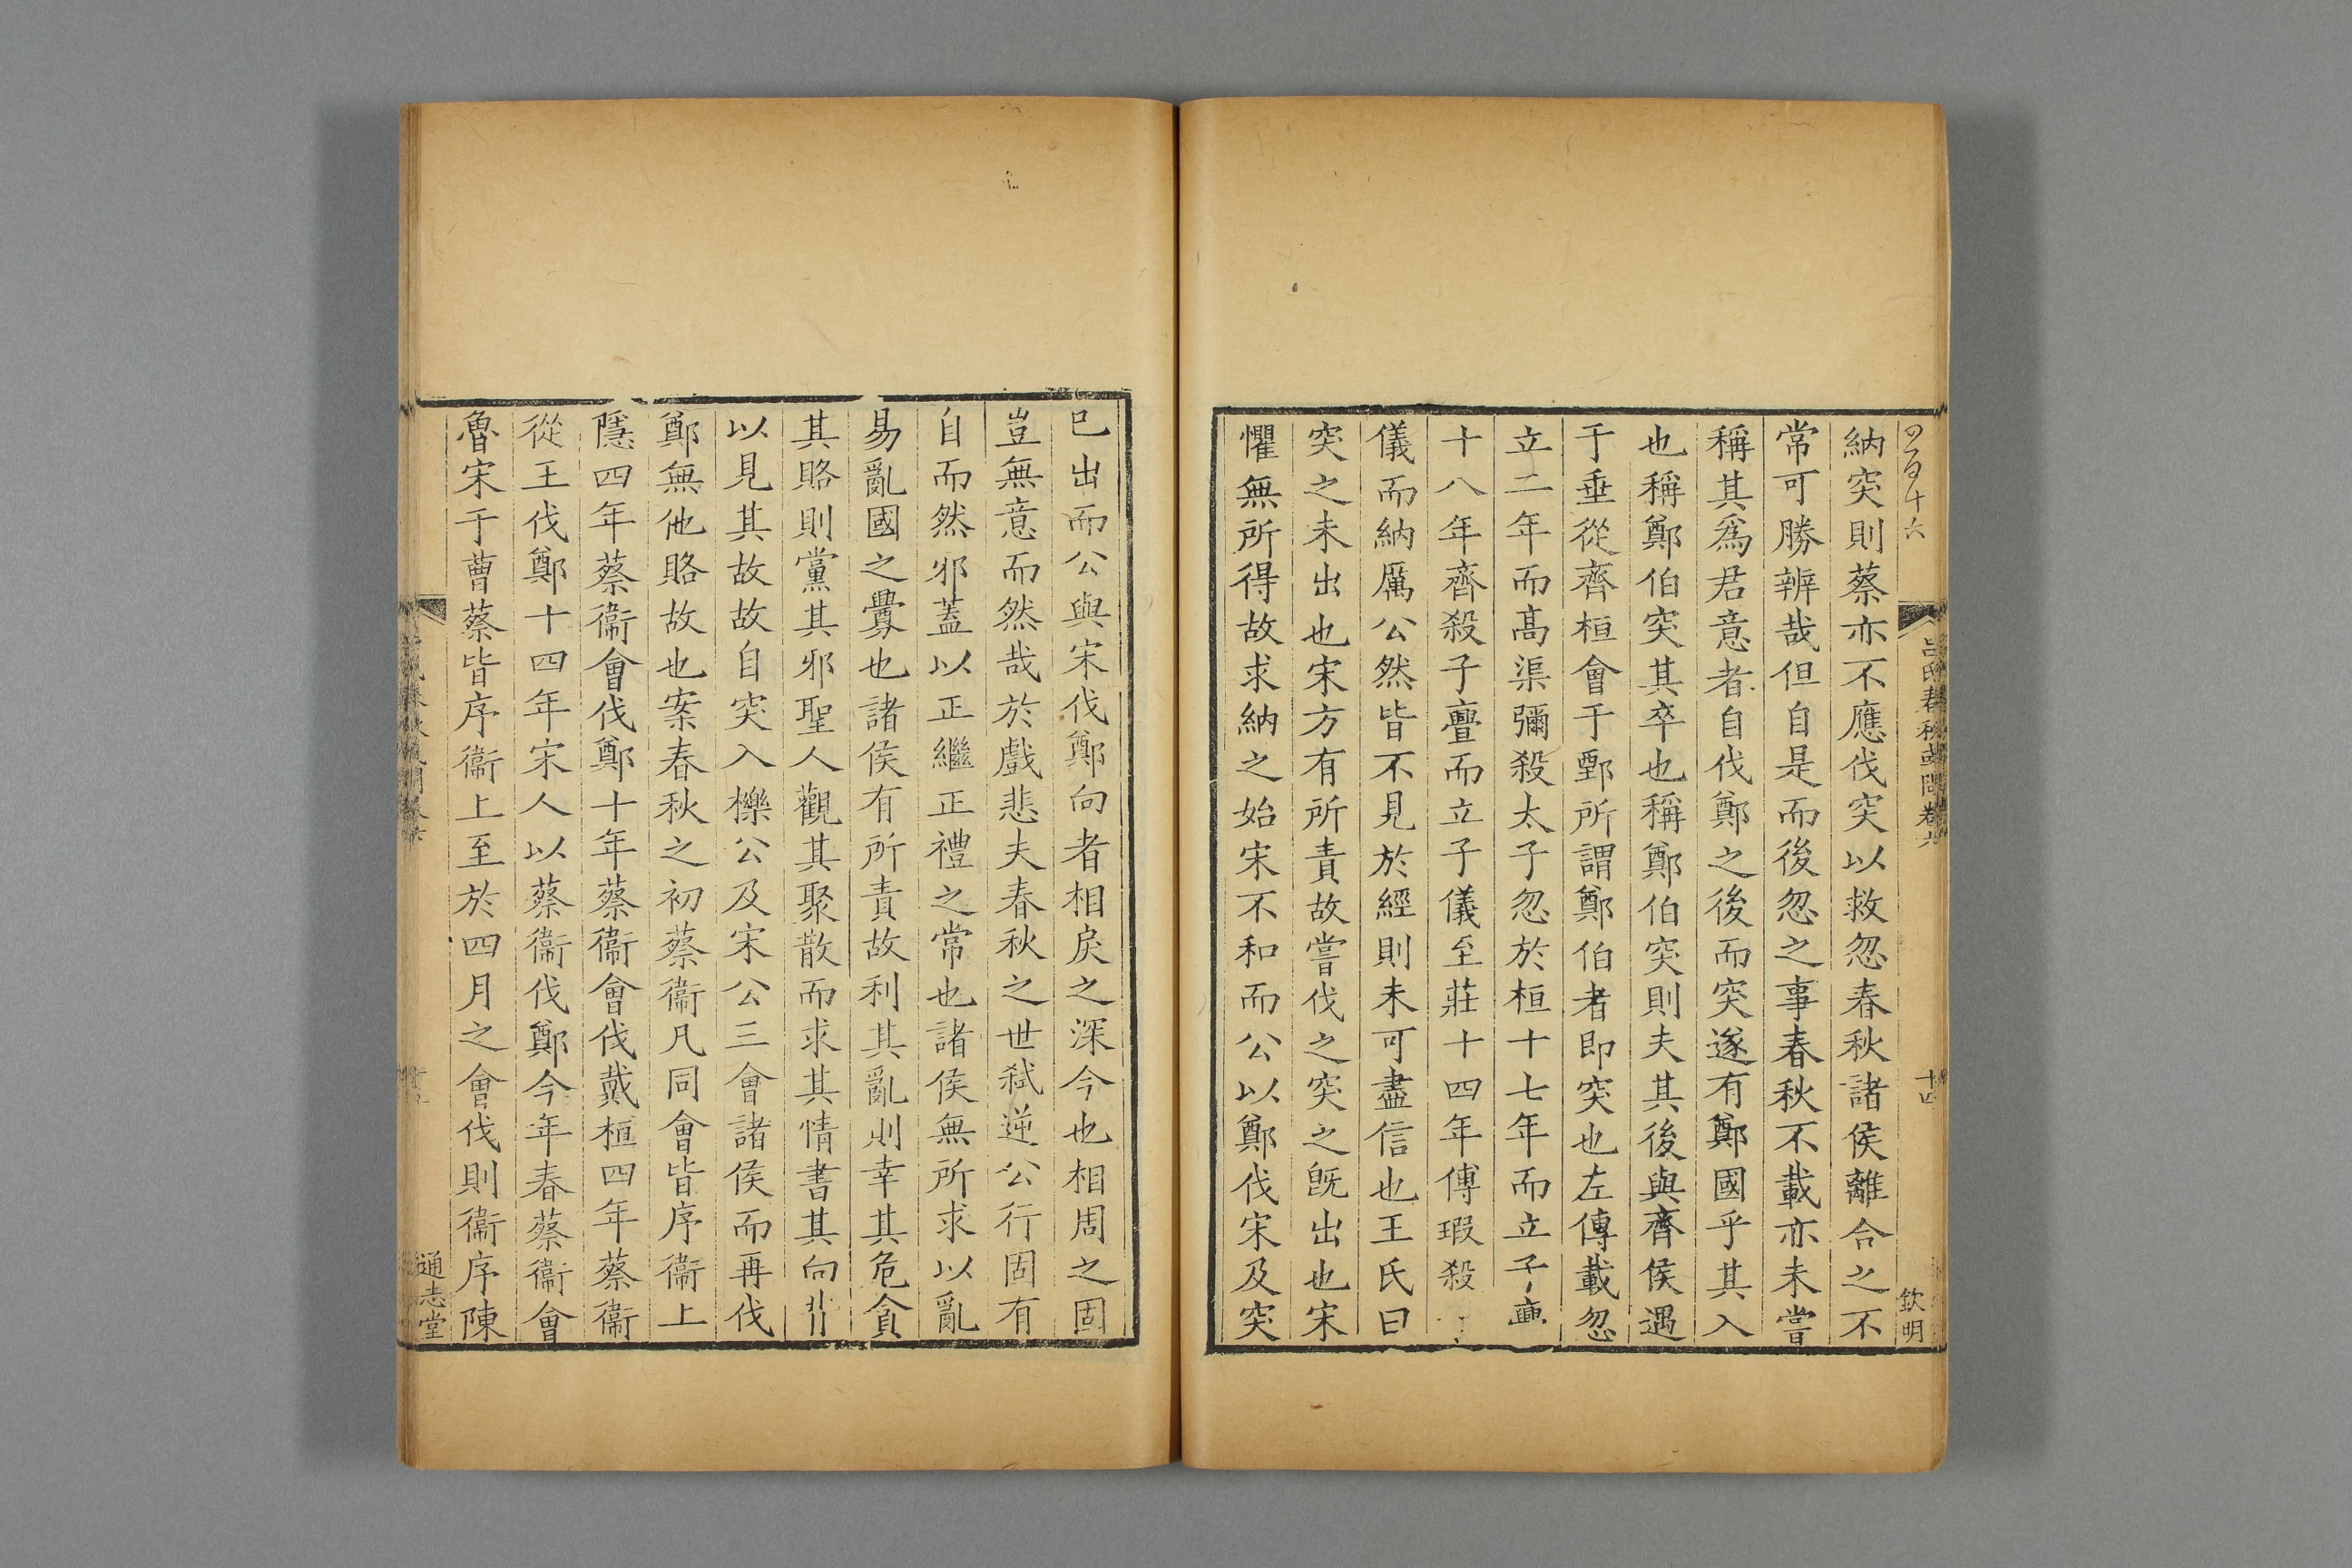 呂氏春秋或問卷六
十四
欽明
納突則蔡亦不應伐突以救忽春秋諸侯離合之不
常可勝辨哉但自是而後忽之事春秋不載亦未嘗
稱其爲君意者自伐鄭之後而突遂有鄭國乎其入
也稱鄭伯突其卒也稱鄭伯突則夫其後與齊侯遇
于垂從齊桓會于鄄所謂鄭伯者即突也左傳載忽
立二年而高渠彌殺太子忽於桓十七年而立子亹
十八年齊殺子亹而立子儀至莊十四年傅瑕殺
儀而納厲公然皆不見於經則未可盡信也王氏曰
突之未出也宋方有所責故嘗伐之突之旣出也宋
懼無所得故求納之始宋不和而公以鄭伐宋及突
已出而公與宋伐鄭向者相戾之深今也相周之固
豈無意而然哉於戲悲夫春秋之世弑逆公行固有
自而然邪蓋以正繼正禮之常也諸侯無所求以亂
易亂國之釁也諸侯有所責故利其亂則幸其危貪
其賂則黨其邪聖人觀其聚散而求其情書其向背
以見其故故自突入櫟公及宋公三會諸侯而再伐
鄭無他賂故也案春秋之初蔡衞凡同會皆序衞上
隱四年蔡衞會伐鄭十年蔡衞會伐戴桓四年蔡衞
從王伐鄭十四年宋人以蔡衞伐鄭今年春蔡衞會
魯宋于曹蔡皆序衞上至於四月之會伐則衞序陳
通志堂